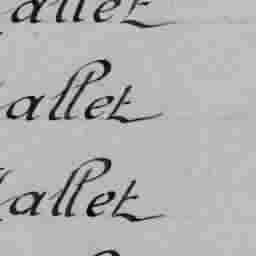 allet
allet
allet